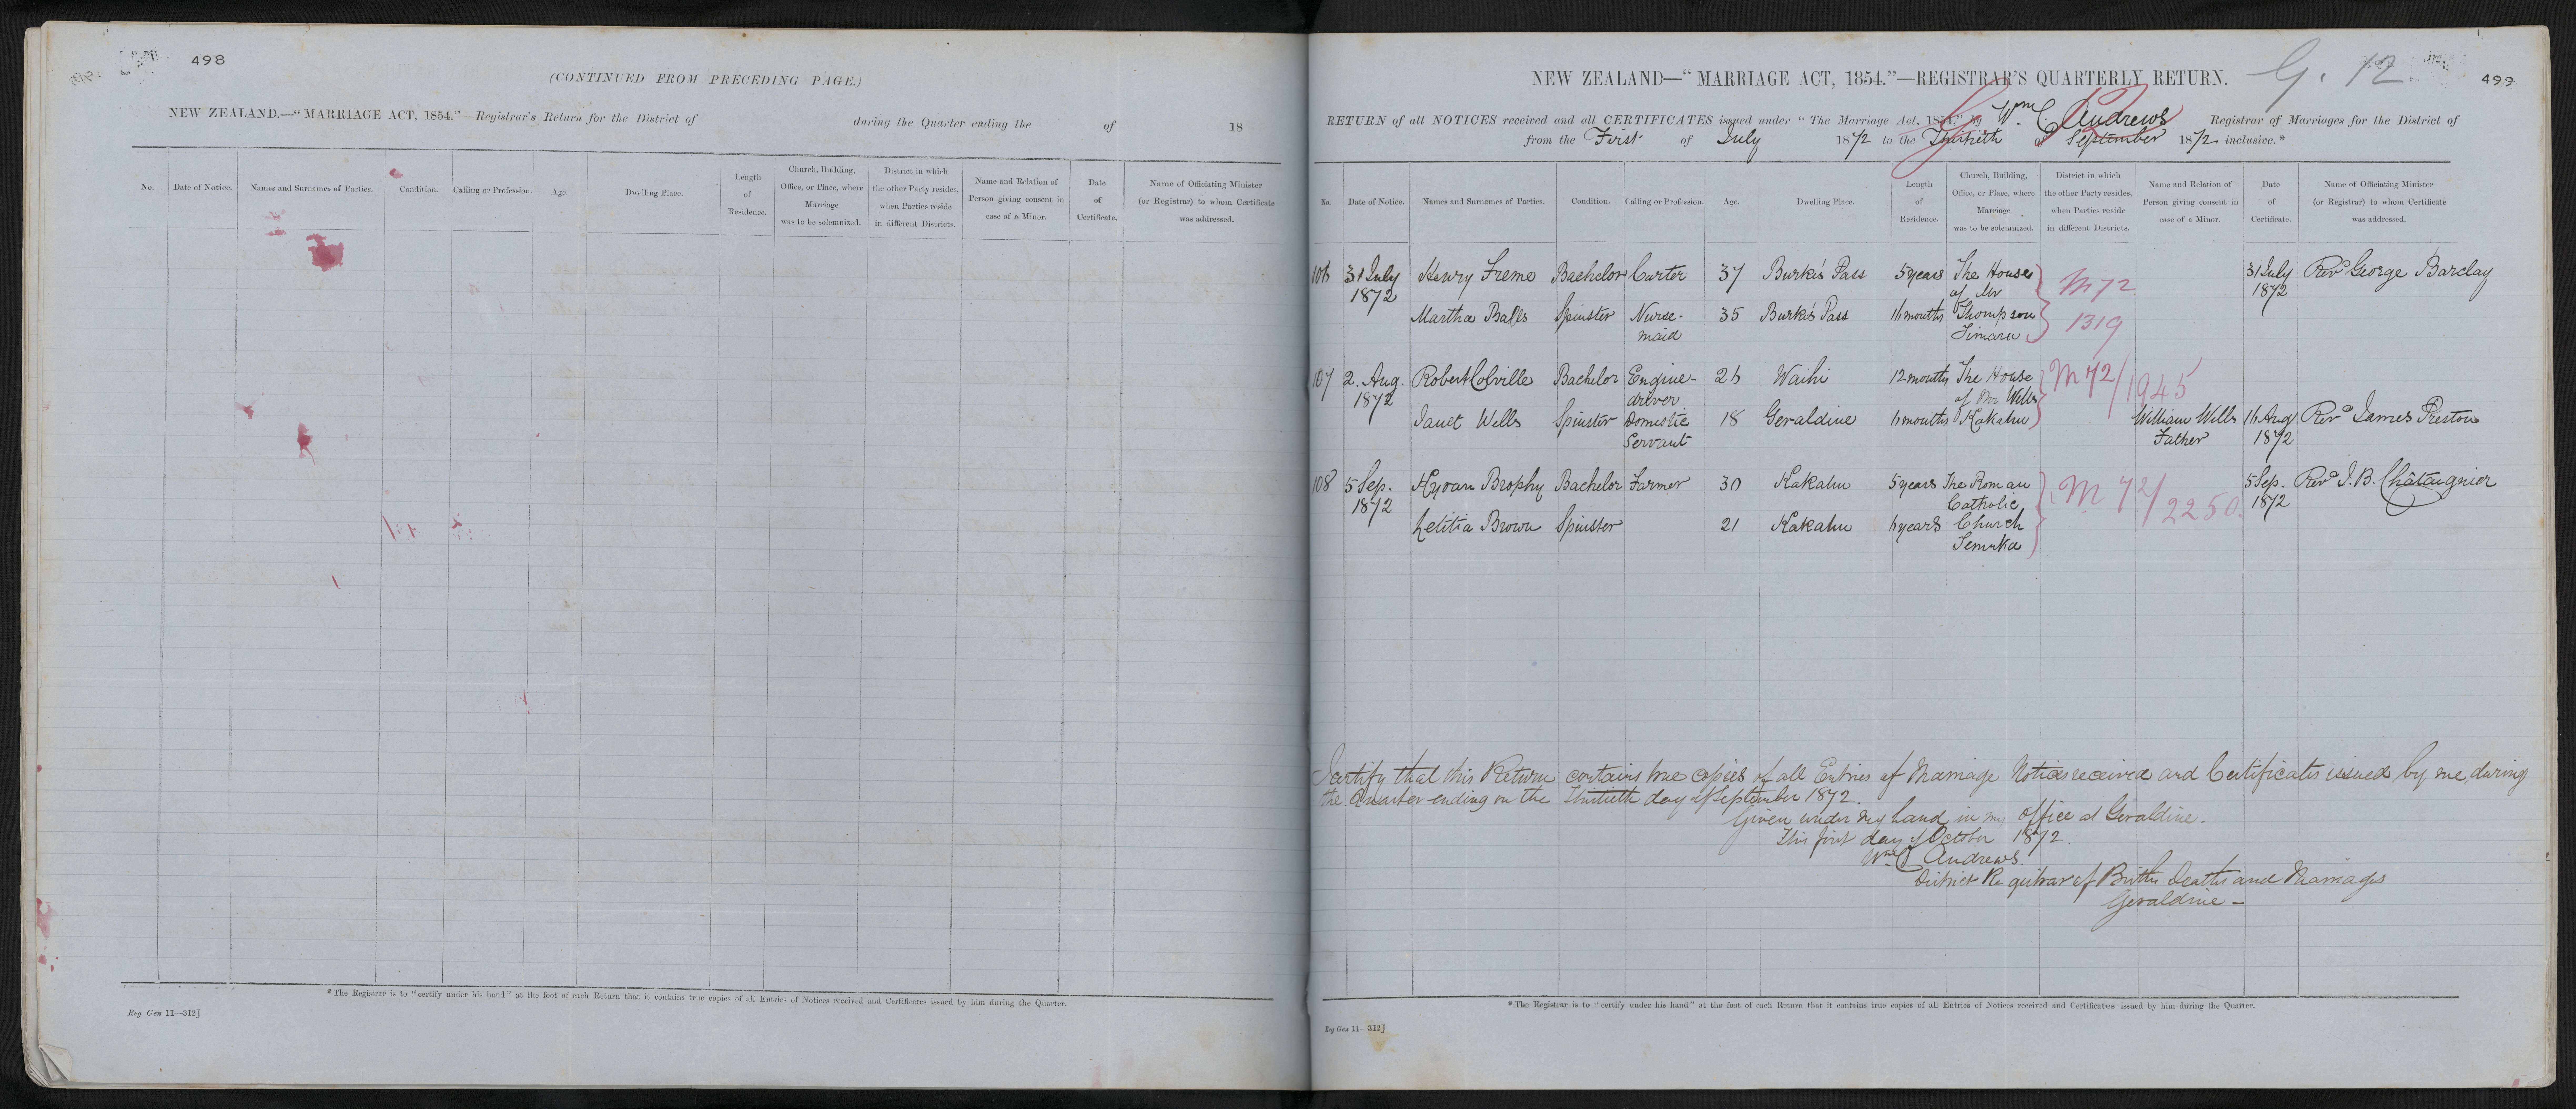 498
(CONTINUED FROM PRECEDING PAGE.)
NEW ZEALAND.—"MARRIAGE ACT, 1854."—Registrar's Return for the District of during the Quarter ending the of 18
No. Date of Notice. Names and Surnames of Parties. Condition. Calling or Profession. Age. Dwelling Place. Length of Residence. Church, Building, Office, or Place, where Marriage was to be solemnized. District in which the other Party resides, when Parties reside in different Districts. Name and Relation of Person giving consent in case of a Minor. Date of Certificate. Name of Officiating Minister (or Registrar) to whom Certificate was addressed.
*The Registrar is to "certify under his hand" at the foot of each Return that it contains true copies of all Entries of Notices received and Certificates issued by him during the Quarter.
Reg Gen 11—312]
G. 12
499
NEW ZEALAND—"MARRIAGE ACT, 1854."—REGISTRAR'S QUARTERLY RETURN.
RETURN of all NOTICES received and all CERTIFICATES issued under "The Marriage Act, 1854," by Wm C Andrews Registrar of Marriages for the District of
from the First of July 1872 to the Thirtieth of September 1872 inclusive.*
No. Date of Notice. Names and Surnames of Parties. Condition. Calling or Profession. Age. Dwelling Place. Length of Residence. Church, Building, Office, or Place, where Marriage was to be solemnized. District in which the other Party resides, when Parties reside in different Districts. Name and Relation of Person giving consent in case of a Minor. Date of Certificate. Name of Officiating Minister (or Registrar) to whom Certificate was addressed.
106 31 July Henry Freme Bachelor Carter 37 Burke's Pass 5 years The House M 72 31 July Revd George Barclay
1872 of Mr 1872
Martha Balls Spinster Nurse- 35 Burke's Pass 16 months Thompson 1319
maid Timaru
107 2. Aug. Robert Colville Bachelor Engine- 26 Waihi 12 months The House M 72/1945
1872 driver of Mr Wells
Janet Wells Spinster Domestic 18 Geraldine 6 months Kakahu William Wells 16 Aug Revd James Preston
Servant Father 1872
108 5 Sep. Hyvan Brophy Bachelor Farmer 30 Kakahu 5 years The Roman M 72/2250 5 Sep. Revd J. B. Châtaignier
1872 Catholic 1872
Letitia Brown Spinster 21 Kakahu 6 years Church
Temuka
I certify that this Return contains true copies of all Entries of Marriage Notices received and Certificates issued by me during
the Quarter ending on the Thirtieth day of September 1872.
Given under my hand in my Office at Geraldine.
This first day of October 1872.
Wm C Andrews.
District Registrar of Births Deaths and Marriages
Geraldine —
*The Registrar is to "certify under his hand" at the foot of each Return that it contains true copies of all Entries of Notices received and Certificates issued by him during the Quarter.
Reg Gen 11—312]